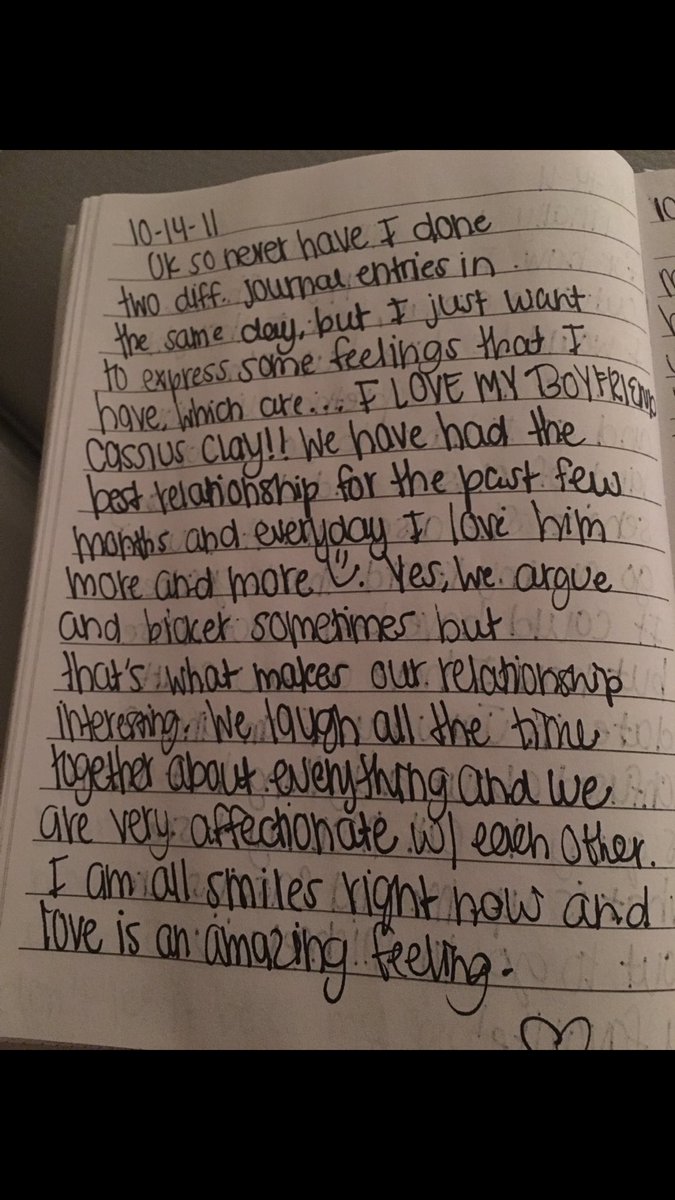 10-14-11
OK so never have I done
two diff. journal entries in
the same day, but I just want
to express some feelings that I
have, which are... I LOVE MY BOYFRIEND
Cassius Clay!! We have had the
best relationship for the past few
months and everyday I love him
more and more. Yes, we argue
and bicker sometimes but
that's what makes our relationship
interesting. We laugh all the time
together about everything and we
are very affectionate w/ each other.
I am all smiles right now and
love is an amazing feeling.
10